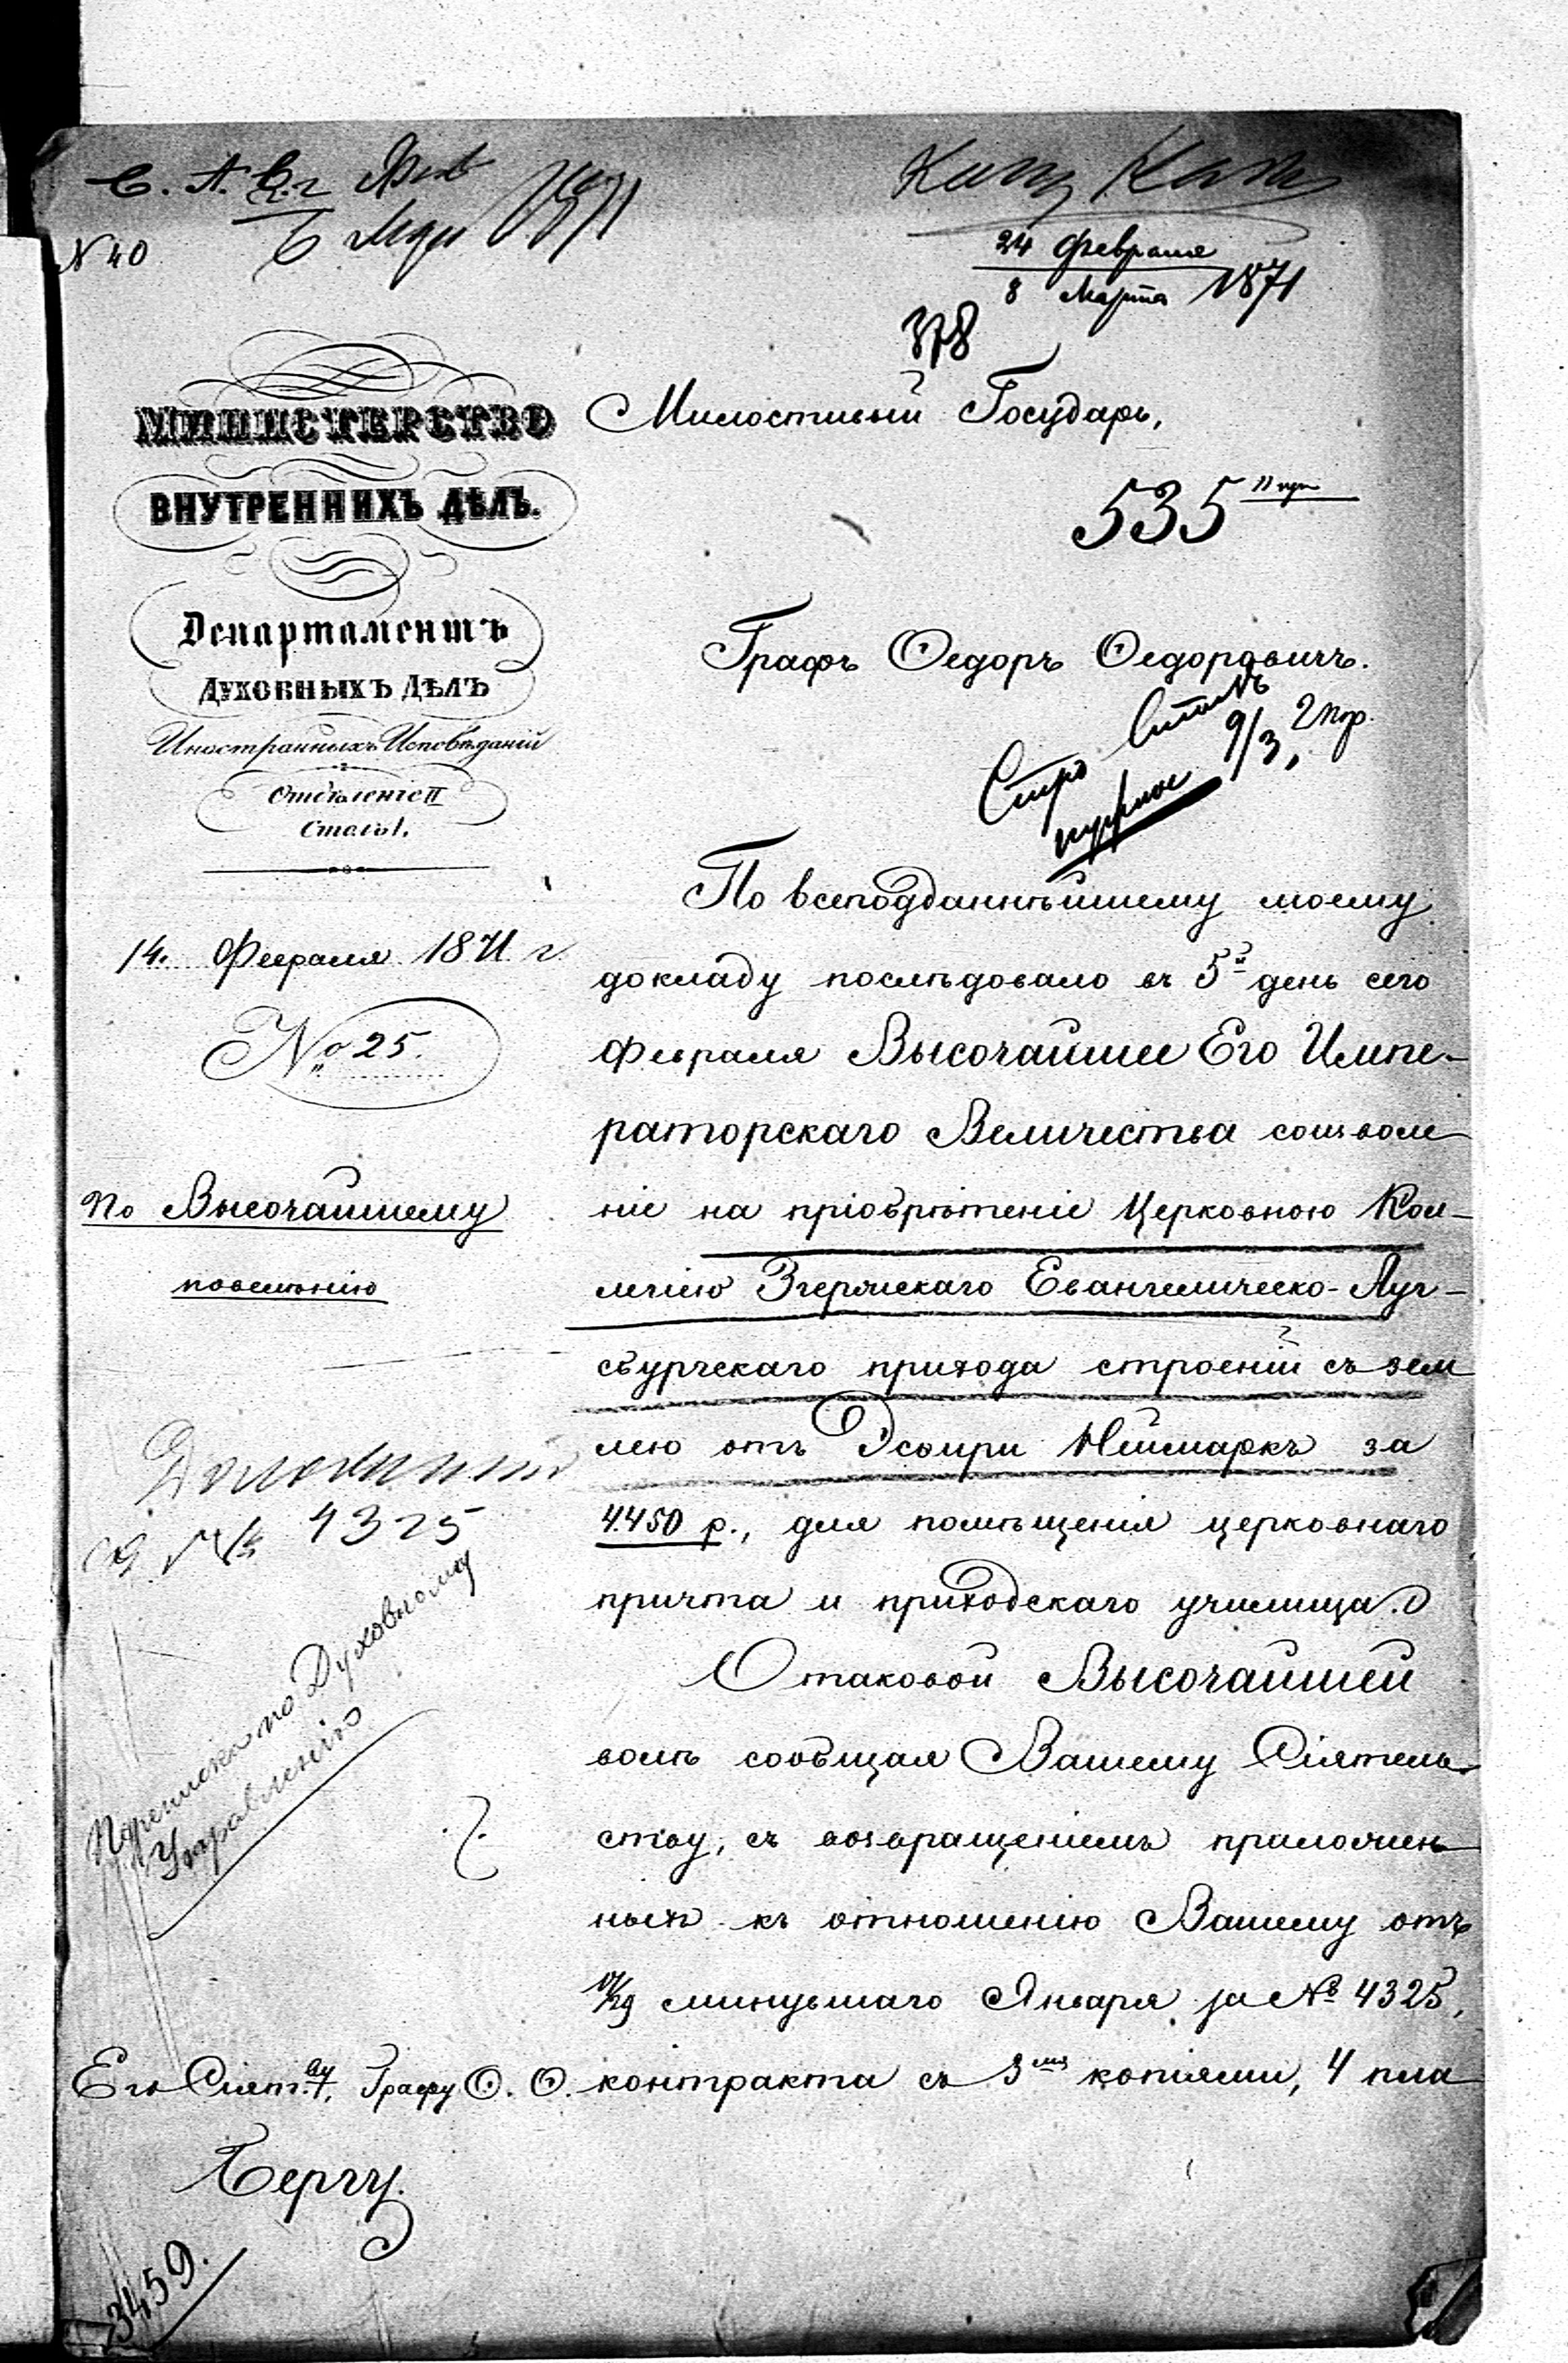 № 40
24 Февраля
8 Марта 1871
378
МИНИСТЕРСТВО
ВНУТРЕННИХЪ ДѢЛЪ.
Департаментъ
ДУХОВНЫХЪ ДѢЛЪ
Иностранныхъ Исповѣданій
Отдѣленіе II
Столъ 1.
14. Февраля 1871 г.
№ 25.
По Высочайшему
повелѣнію
4325
Переписка по Духовному
Управленію
Его Сіят.ву, Графу Ѳ. Ѳ.
Бергу.
3459.
Милостивый Государь,
535
Графъ Ѳедоръ Ѳедоровичъ.
9/3
По всеподданнѣйшему моему
докладу послѣдовало въ 5й день сего
Февраля Высочайшее Его Импе-
раторскаго Величества соизволе-
ніе на пріобрѣтеніе Церковною Кол-
легіею Згержскаго Евангелическо-Ауг-
сбургскаго прихода строеній съ зем
лею отъ Эсѳири Неймаркъ за
4.450 р., для помѣщенія церковнаго
причта и приходскаго училища.
О таковой Высочайшей
волѣ сообщая Вашему Сіятель-
ству, съ возвращеніемъ приложен-
ныхъ къ отношенію Вашему отъ
17/29 минувшаго Января за № 4325,
контракта съ 3мя копіями, 4 пла